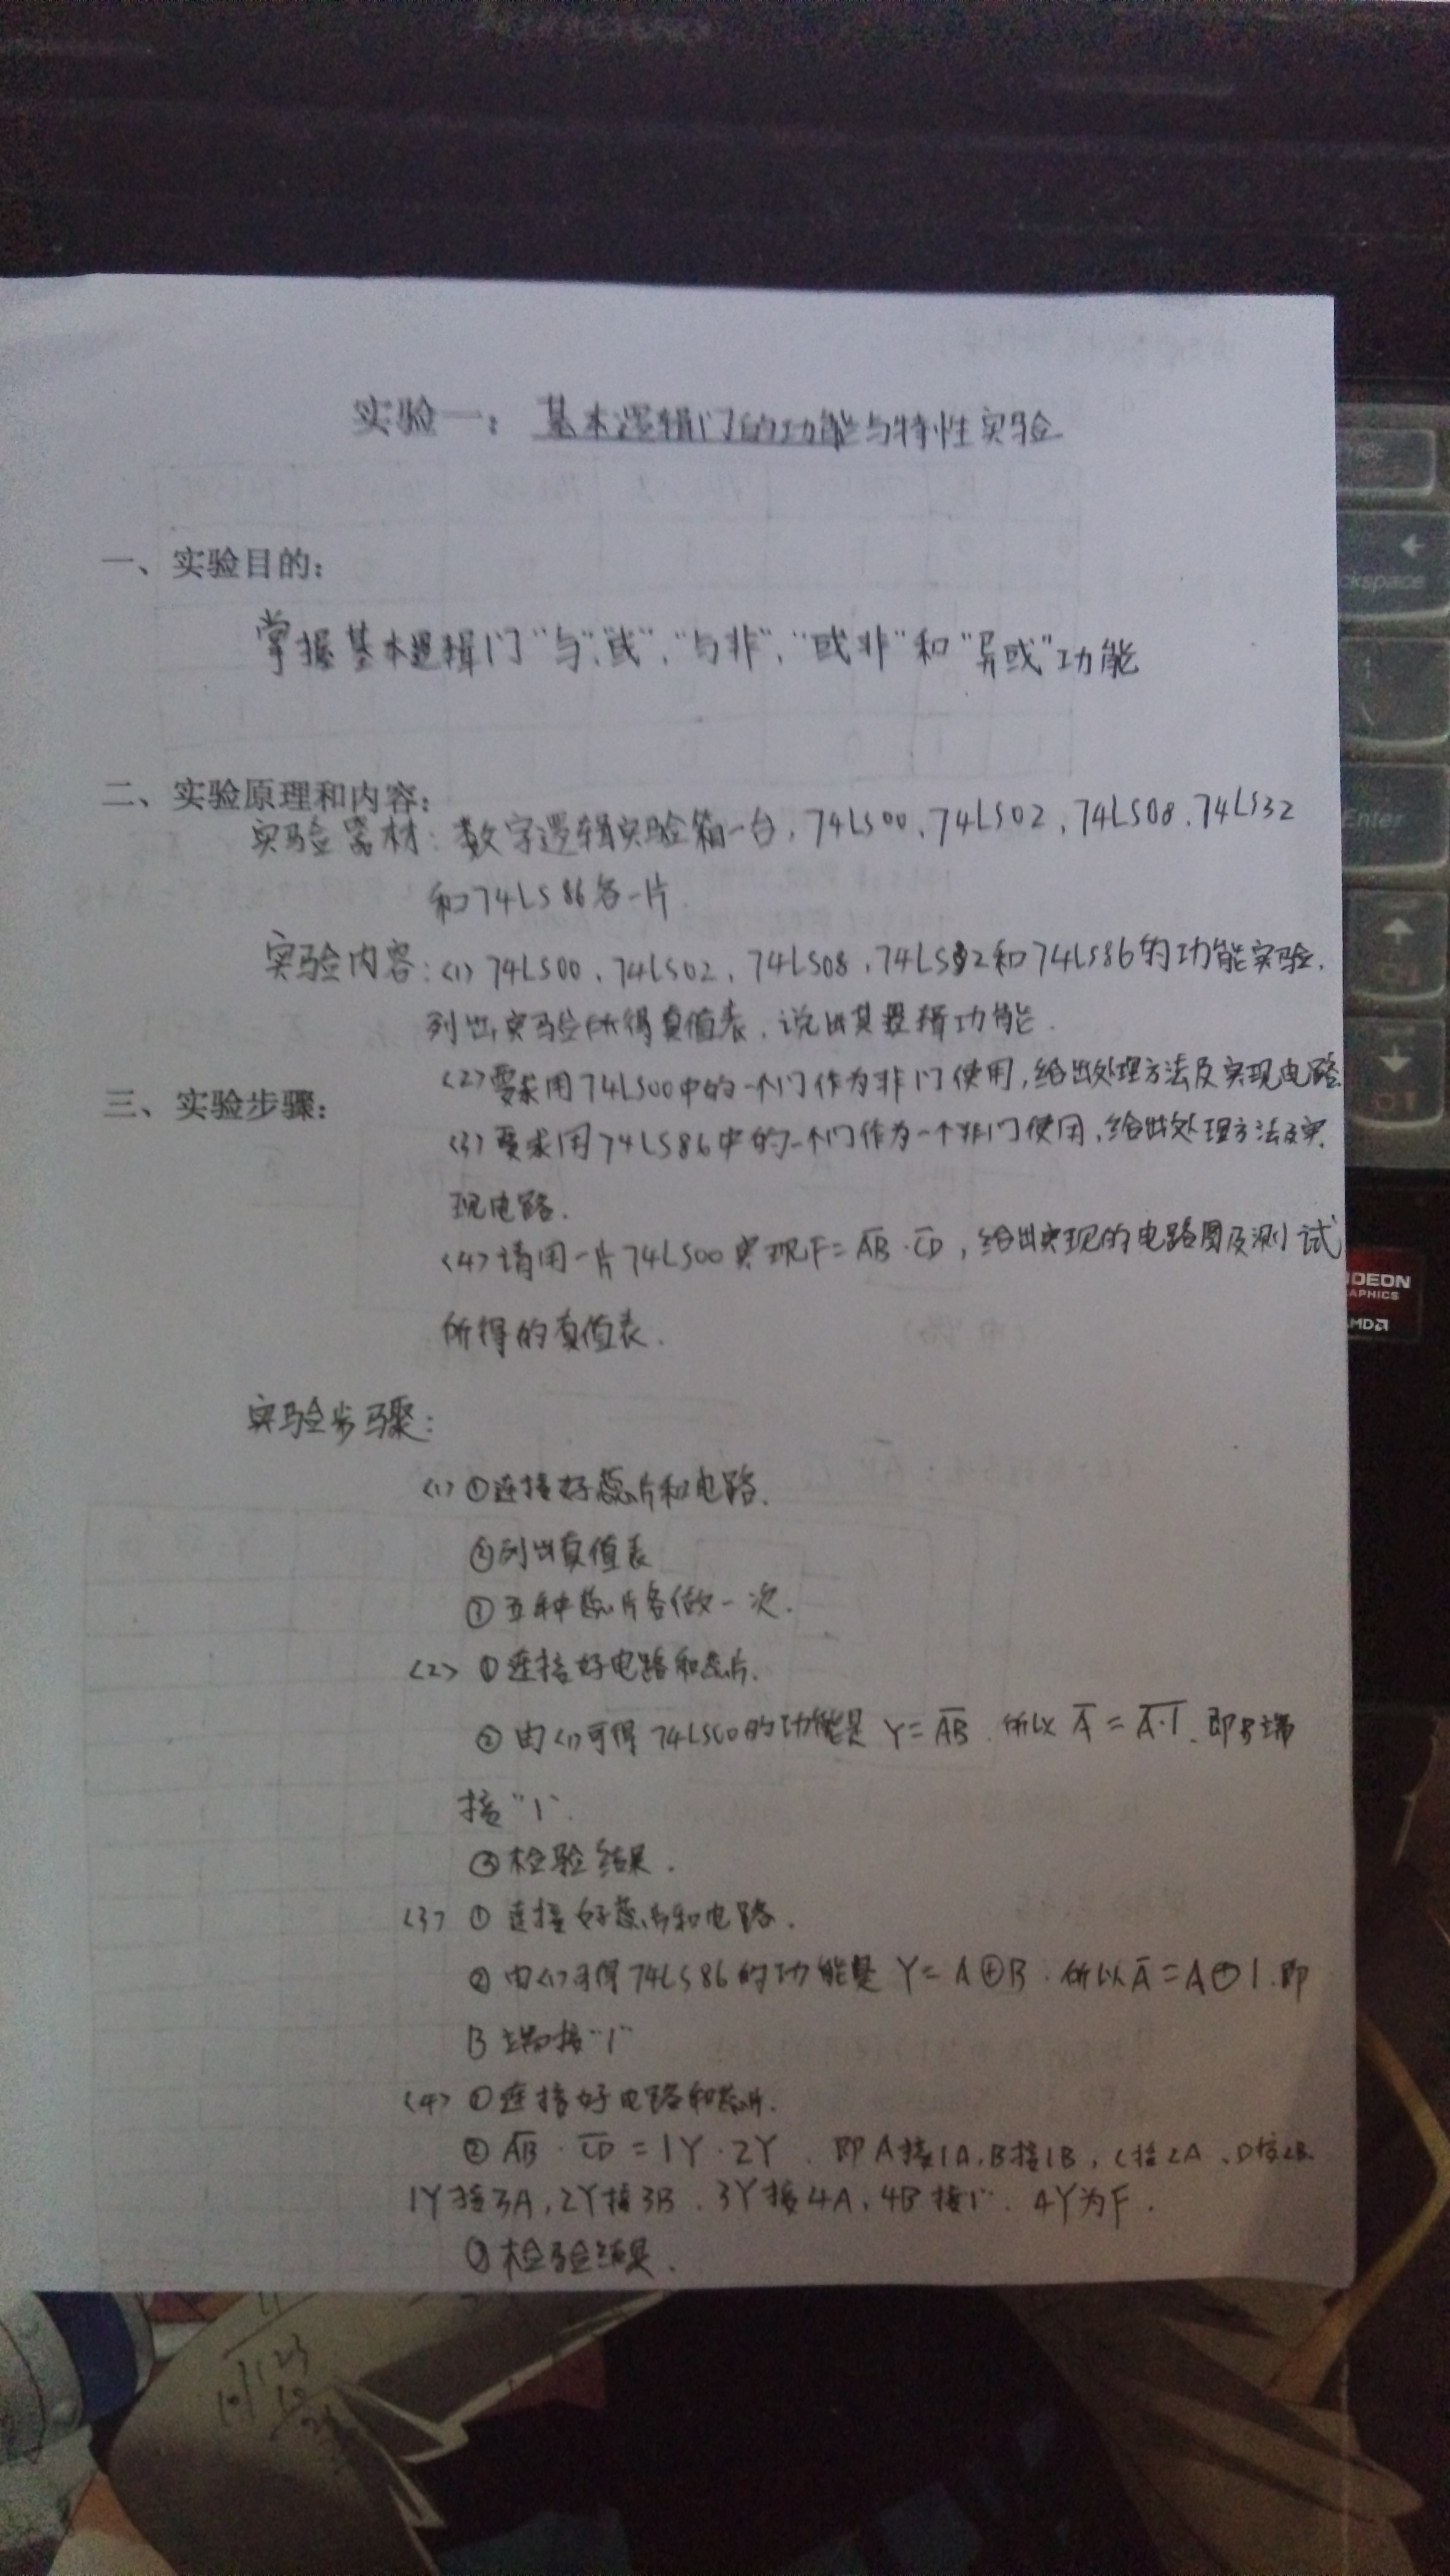 实验一：基本逻辑门的功能与特性实验
一、实验目的：
掌握基本逻辑门“与”、“或”、“与非”、“或非”和“异或”功能
二、实验原理和内容：
实验器材：数字逻辑实验箱一台，74LS00、74LS02、74LS08、74LS32
和74LS86各一片
实验内容：(1) 74LS00、74LS02、74LS08、74LS32和74LS86的功能实验，
列出实验所得真值表，说出其逻辑功能．
(2)要求用74LS00中的一个门作为非门使用，给出处理方法及实现电路
三、实验步骤：
(3)要求用74LS86中的一个门作为一个非门使用，给出处理方法及实
现电路．
(4)请用一片74LS00实现F=A̅B̅·C̅D̅，给出实现的电路图及测试
所得的真值表．
实验步骤：
(1) ①连接好蕊片和电路．
②列出真值表
③五种蕊片各做一次．
(2) ①连接好电路和蕊片．
②由(1)可得74LS00的功能是Y=A̅B̅．所以A̅=A̅·̅1̅．即B端
接“1”．
③检验结果．
(3) ①连接好蕊片和电路．
②由(1)可得74LS86的功能是Y=A⊕B．所以A̅=A⊕1．即
B端接“1”
(4) ①连接好电路和蕊片．
②A̅B̅·C̅D̅=1Y·2Y．即A接1A，B接1B，C接2A，D接2B．
1Y接3A，2Y接3B．3Y接4A，4B接“1”．4Y为F．
③检验结果．
Backspace
Enter
GRAPHICS
AMD